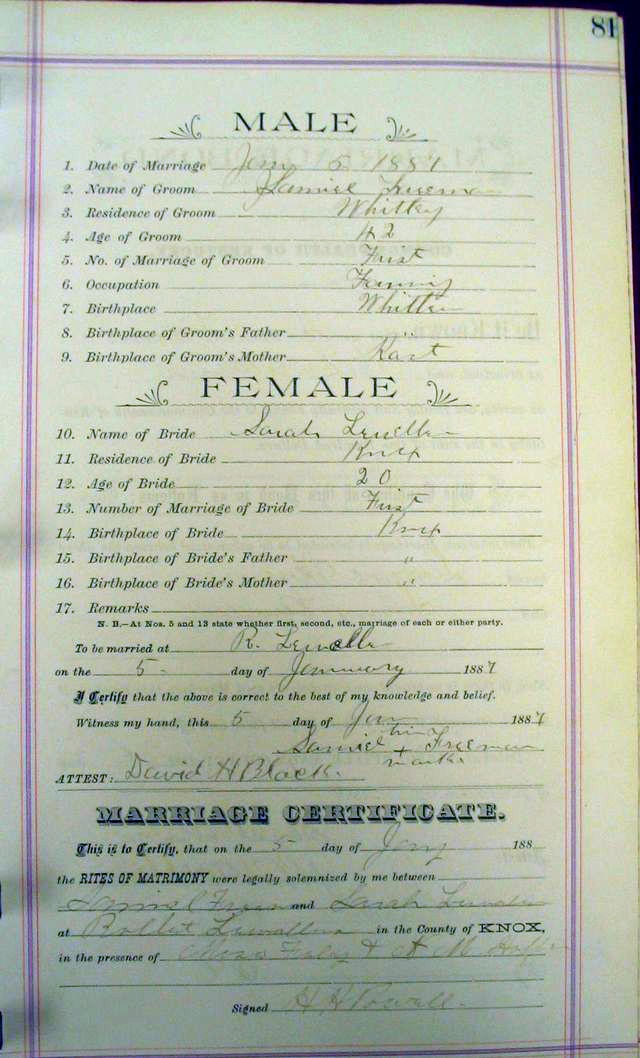 81
MALE
1. Date of Marriage Jany 5 1887
2. Name of Groom Samiel Freeman
3. Residence of Groom Whitley
4. Age of Groom 42
5. No. of Marriage of Groom First
6. Occupation
7. Birthplace Whitley
8. Birthplace of Groom's Father "
9. Birthplace of Groom's Mother
FEMALE
10. Name of Bride Sarah Lewellen
11. Residence of Bride Knox
12. Age of Bride 20
13. Number of Marriage of Bride First
14. Birthplace of Bride Knox
15. Birthplace of Bride's Father "
16. Birthplace of Bride's Mother "
17. Remarks
N. B.—At Nos. 5 and 13 state whether first, second, etc., marriage of each or either party.
To be married at R.
on the 5 day of January 1887
I Certify that the above is correct to the best of my knowledge and belief.
Witness my hand, this 5 day of Jan 1887
Samiel his + mark Freeman
ATTEST: David H Black.
MARRIAGE CERTIFICATE.
This is to Certify, that on the 5 day of Jany 188
the RITES OF MATRIMONY were legally solemnized by me between
and Sarah
at in the County of KNOX,
in the presence of & A M
Signed H H Powell.